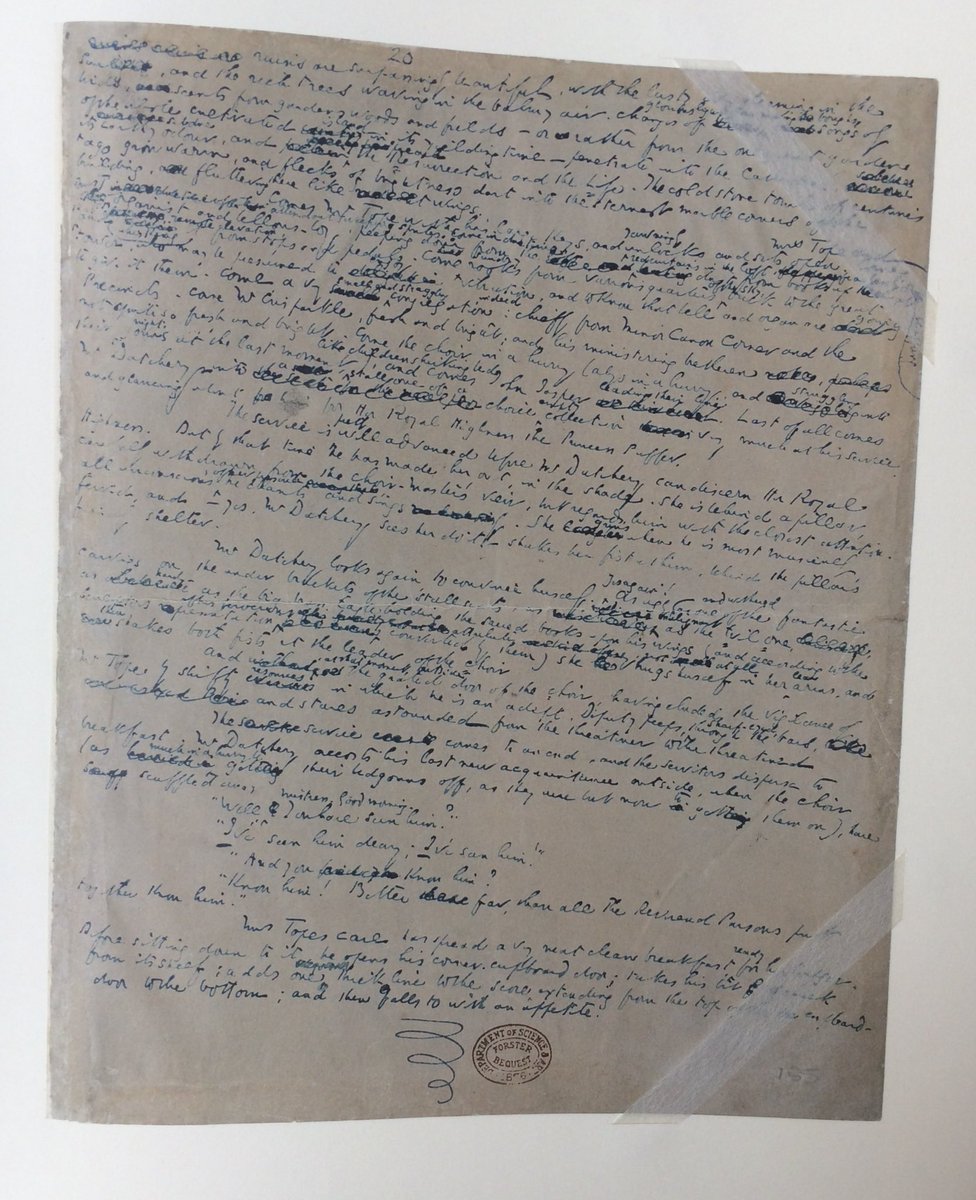 20
ruins are surpassingly beautiful, with the lusty gleaming in the
sun, and the rich trees waving in the balmy air. Changes of glorious light from moving boughs, songs of
birds, scents from gardens, woods and fields — or rather, from the one great garden
of the whole cultivated island in its yielding time — penetrate into the Cathedral,
its earthy odour, and preach the Resurrection and the Life. The cold stone tombs of centuries
ago grow warm, and flecks of brightness dart into the sternest marble corners of the
building, fluttering there like wings.
Comes Mr Tope with his large keys, and yawningly unlocks and sets open. Come Mrs Tope and
attendant sweeping sprites. Come in due time organist and bellows-boy, peeping down from the red curtains in the loft, books
remote elevation from stops and pedals. Come rooks from various quarters, back to the great tower;
who may be presumed to enjoy vibration, and to know that bell and organ are going
to give it them. Come a very small and straggling congregation indeed: chiefly from Minor Canon Corner and the
Precincts. Come Mr Crisparkle, fresh and bright; and his ministering brethren,
not quite so fresh and bright. Come the choir, in a hurry (always in a hurry, and struggling into
their nightgowns at the last moment, like children shirking bed), and comes John Jasper leading their line. Last of all comes
Mr Datchery into a stall, one of a choice empty collection very much at his service
and glancing about him for Her Royal Highness the Princess Puffer.
The service is well advanced before Mr Datchery can discern Her Royal
Highness. But by that time he has made her out, in the shade. She is behind a pillar
carefully withdrawn from the choir-master's view, but regards him with the closest attention.
all unconscious of her presence, he chants and sings. She grins when he is most musically
fervid, and — yes, Mr Datchery sees her do it! — shakes her fist at him, behind the pillar's
friendly shelter.
Mr Datchery looks again to convince himself. Yes, again! As ugly and withered as one of the fantastic
carvings on the under brackets of the stall seats, as malignant as the Evil One,
as hard as the big brass eagle holding the sacred books upon his wings (and according to the
sculptor's representation of his ferocious attributes not at all converted by them) she hugs herself in her lean arms, and
then shakes both fists at the leader of the choir.
And at that moment, outside the grated door of the choir, having eluded the vigilance of
Mr Tope by shifty resources in which he is an adept, Deputy peeps, sharp-eyed, through the bars,
and stares astounded from the threatener to the threatened.
The service comes to an end, and the servitors disperse to
breakfast. Mr Datchery accosts his last new acquaintance outside, when the choir
(as much in a hurry to get their bedgowns off, as they were but now to get them on), have
scuffled away.
"Well, mistress. Good morning. You have seen him?"
"I've seen him, deary; I've seen him!"
"And you know him?
"Know him! Better far, than all the Reverend Parsons put
together know him."
Mrs Tope's care has spread a very neat clean breakfast ready for her lodger.
Before sitting down to it, he opens his corner-cupboard door; takes his bit of chalk
from its shelf; adds one thick line to the score, extending from the top of the cupboard-
door to the bottom; and then falls to with an appetite.
DEPARTMENT OF SCIENCE & ART
FORSTER
BEQUEST
1876